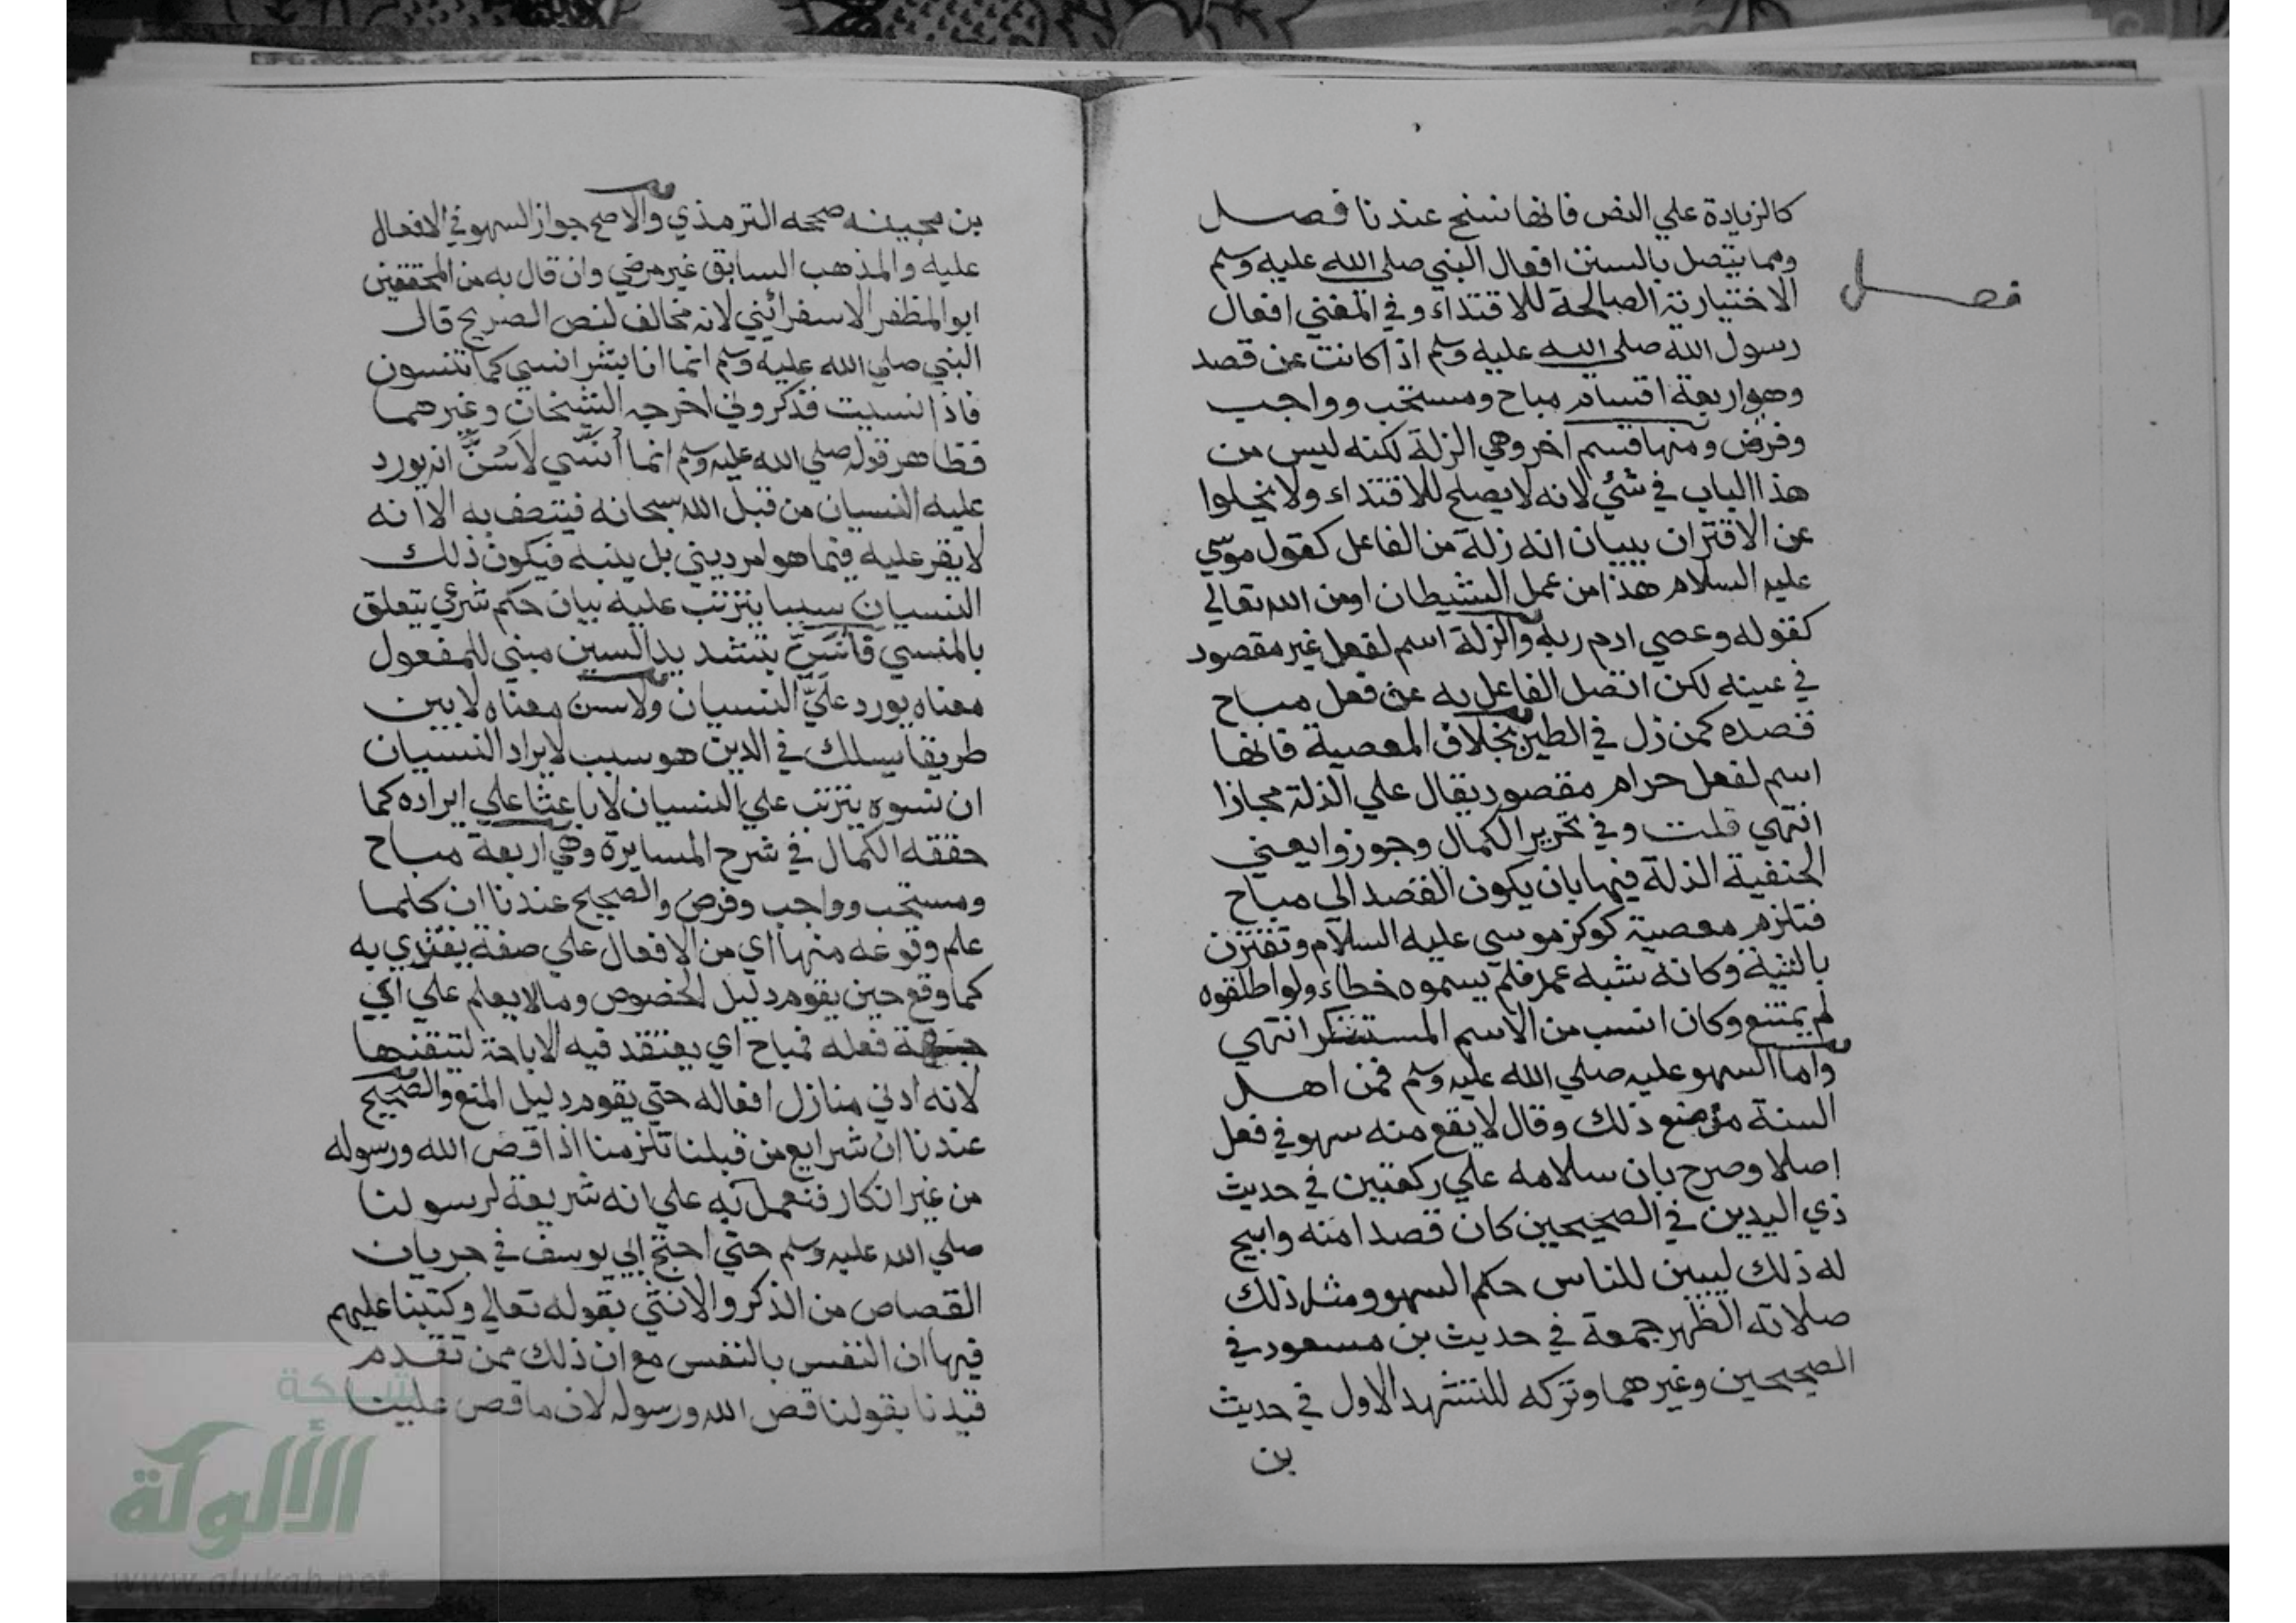 كالزيادة علي النص فانها نسخ عندنا فصل
فصل
ومما يتصل بالسنن افعال النبي صلي الله عليه وسلم
الاختيارية الصالحة للاقتداء وفي المغني افعال
رسول الله صلي الله عليه وسلم اذا كانت عن قصد
وهو اربعة اقسام مباح ومستحب وواجب
وفرض ومنها قسم اخر وهي الزلة لكنه ليس من
هذا الباب في شئي لانه لا يصلح للاقتداء ولا يخلوا
عن الاقتران ببيان انه زلة من الفاعل كقول موسي
عليه السلام هذا من عمل الشيطان اومن الله تعالي
كقوله وعصي ادم ربه والزلة اسم لفعل غير مقصود
في عينه لكن اتصل الفاعل به عن فعل مباح
قصده كمن زل في الطين بخلاف المعصية فانها
اسم لفعل حرام مقصود يقال علي الذلة مجازا
انتهي قلت وفي تحرير الكمال وجوزوا يعني
الحنفية الذلة فيها بان يكون القصد الي مباح
فتلزم معصية كوكز موسي عليه السلام وتقترن
بالنية وكانه شبه عمد فلم يسموه خطاء ولو اطلقوه
لم يمتنع وكان انسب من الاسم المستنكر انتهي
واما السهو عليه صلي الله عليه وسلم فمن اهل
السنة من منع ذلك وقال لا يقع منه سهو في فعل
اصلا وصرح بان سلامه علي ركعتين في حديث
ذي اليدين في الصحيحين كان قصدا منه وابيح
له ذلك ليبين للناس حكم السهو ومثل ذلك
صلاته الظهر جمعة في حديث بن مسعود في
الصحيحين وغيرهما وتركه للتشهد الاول في حديث
بن
بن بحينه صححه الترمذي والاصح جواز السهو في الافعال
عليه والمذهب السابق غير مرضي وان قال به من المحققين
ابو المظفر الاسفرائيني لانه مخالف لنص الصريح قال
النبي صلي الله عليه وسلم انما انا بشر انسي كما تنسون
فاذا نسيت فذكروني اخرجه الشيخان وغيرهما
فظاهر قوله صلي الله عليه وسلم انما أُنَسَّي لأَسُنَّ انه يورد
عليه النسيان من قبل الله سبحانه فيتصف به الا انه
لا يقر عليه فيما هو امر ديني بل ينبه فيكون ذلك
النسيان سببا يترتب عليه بيان حكم شرعي يتعلق
بالمنسي فأُنَسَّيَ بتشديد السين مبني للمفعول
معناه يورد عليَّ النسيان ولاسن معناه لابين
طريقا يسلك في الدين هو سبب لايراد النسيان
ان نسوه يترتب علي النسيان لا باعثا علي ايراده كما
حققه الكمال في شرح المسايرة وهي اربعة مباح
ومستحب وواجب وفرض والصحيح عندنا ان كلما
علم وقوعه منها اي من الافعال علي صفة يقتدي به
كما وقع حين يقوم دليل الخصوص وما لا يعلم علي اي
جهة فعله فمباح اي يعتقد فيه الاباحة لتيقنها
لانه ادني منازل افعاله حتي يقوم دليل المنع والصحيح
عندنا ان شرايع من قبلنا تلزمنا اذا قص الله ورسوله
من غير انكار فنعمل به علي انه شريعة لرسولنا
صلي الله عليه وسلم حتي احتج ابي يوسف في جريان
القصاص من الذكر والانثي بقوله تعالي وكتبنا عليهم
فيها ان النفس بالنفس مع ان ذلك ممن تقدم
قيدنا بقولنا قص الله ورسوله لان ما قص علينا
شبكة
الألوكة
www.alukah.net